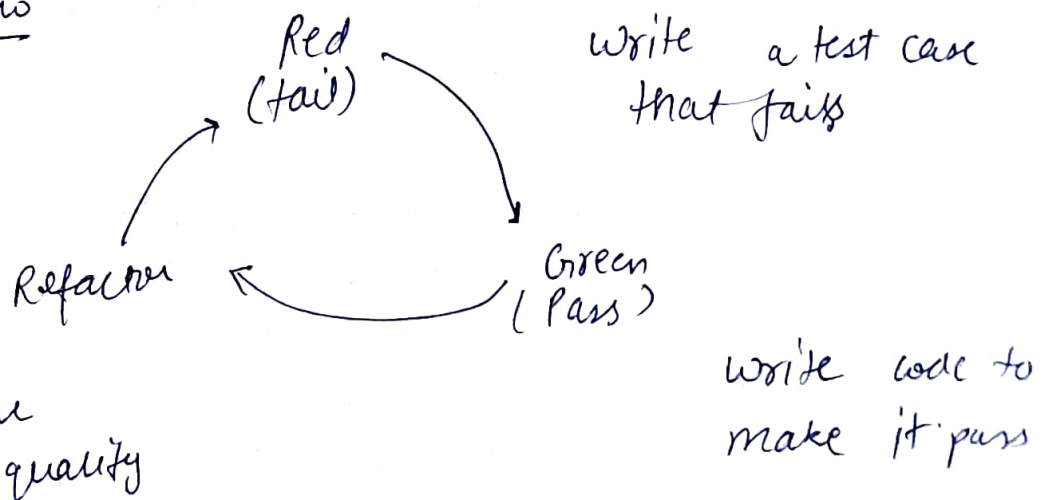 Red
(fail)
Write a test case
that fails
Green
(Pass)
Refactor
write code to
make it pass
quality